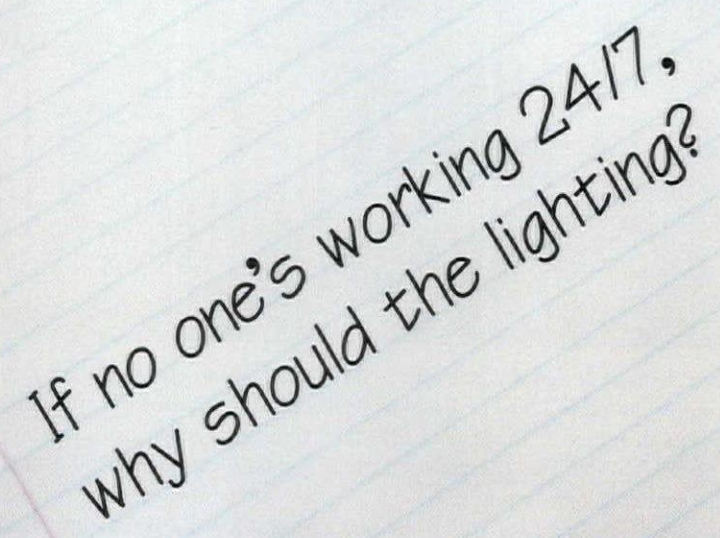 If no one's working 24/7,
why should the lighting?